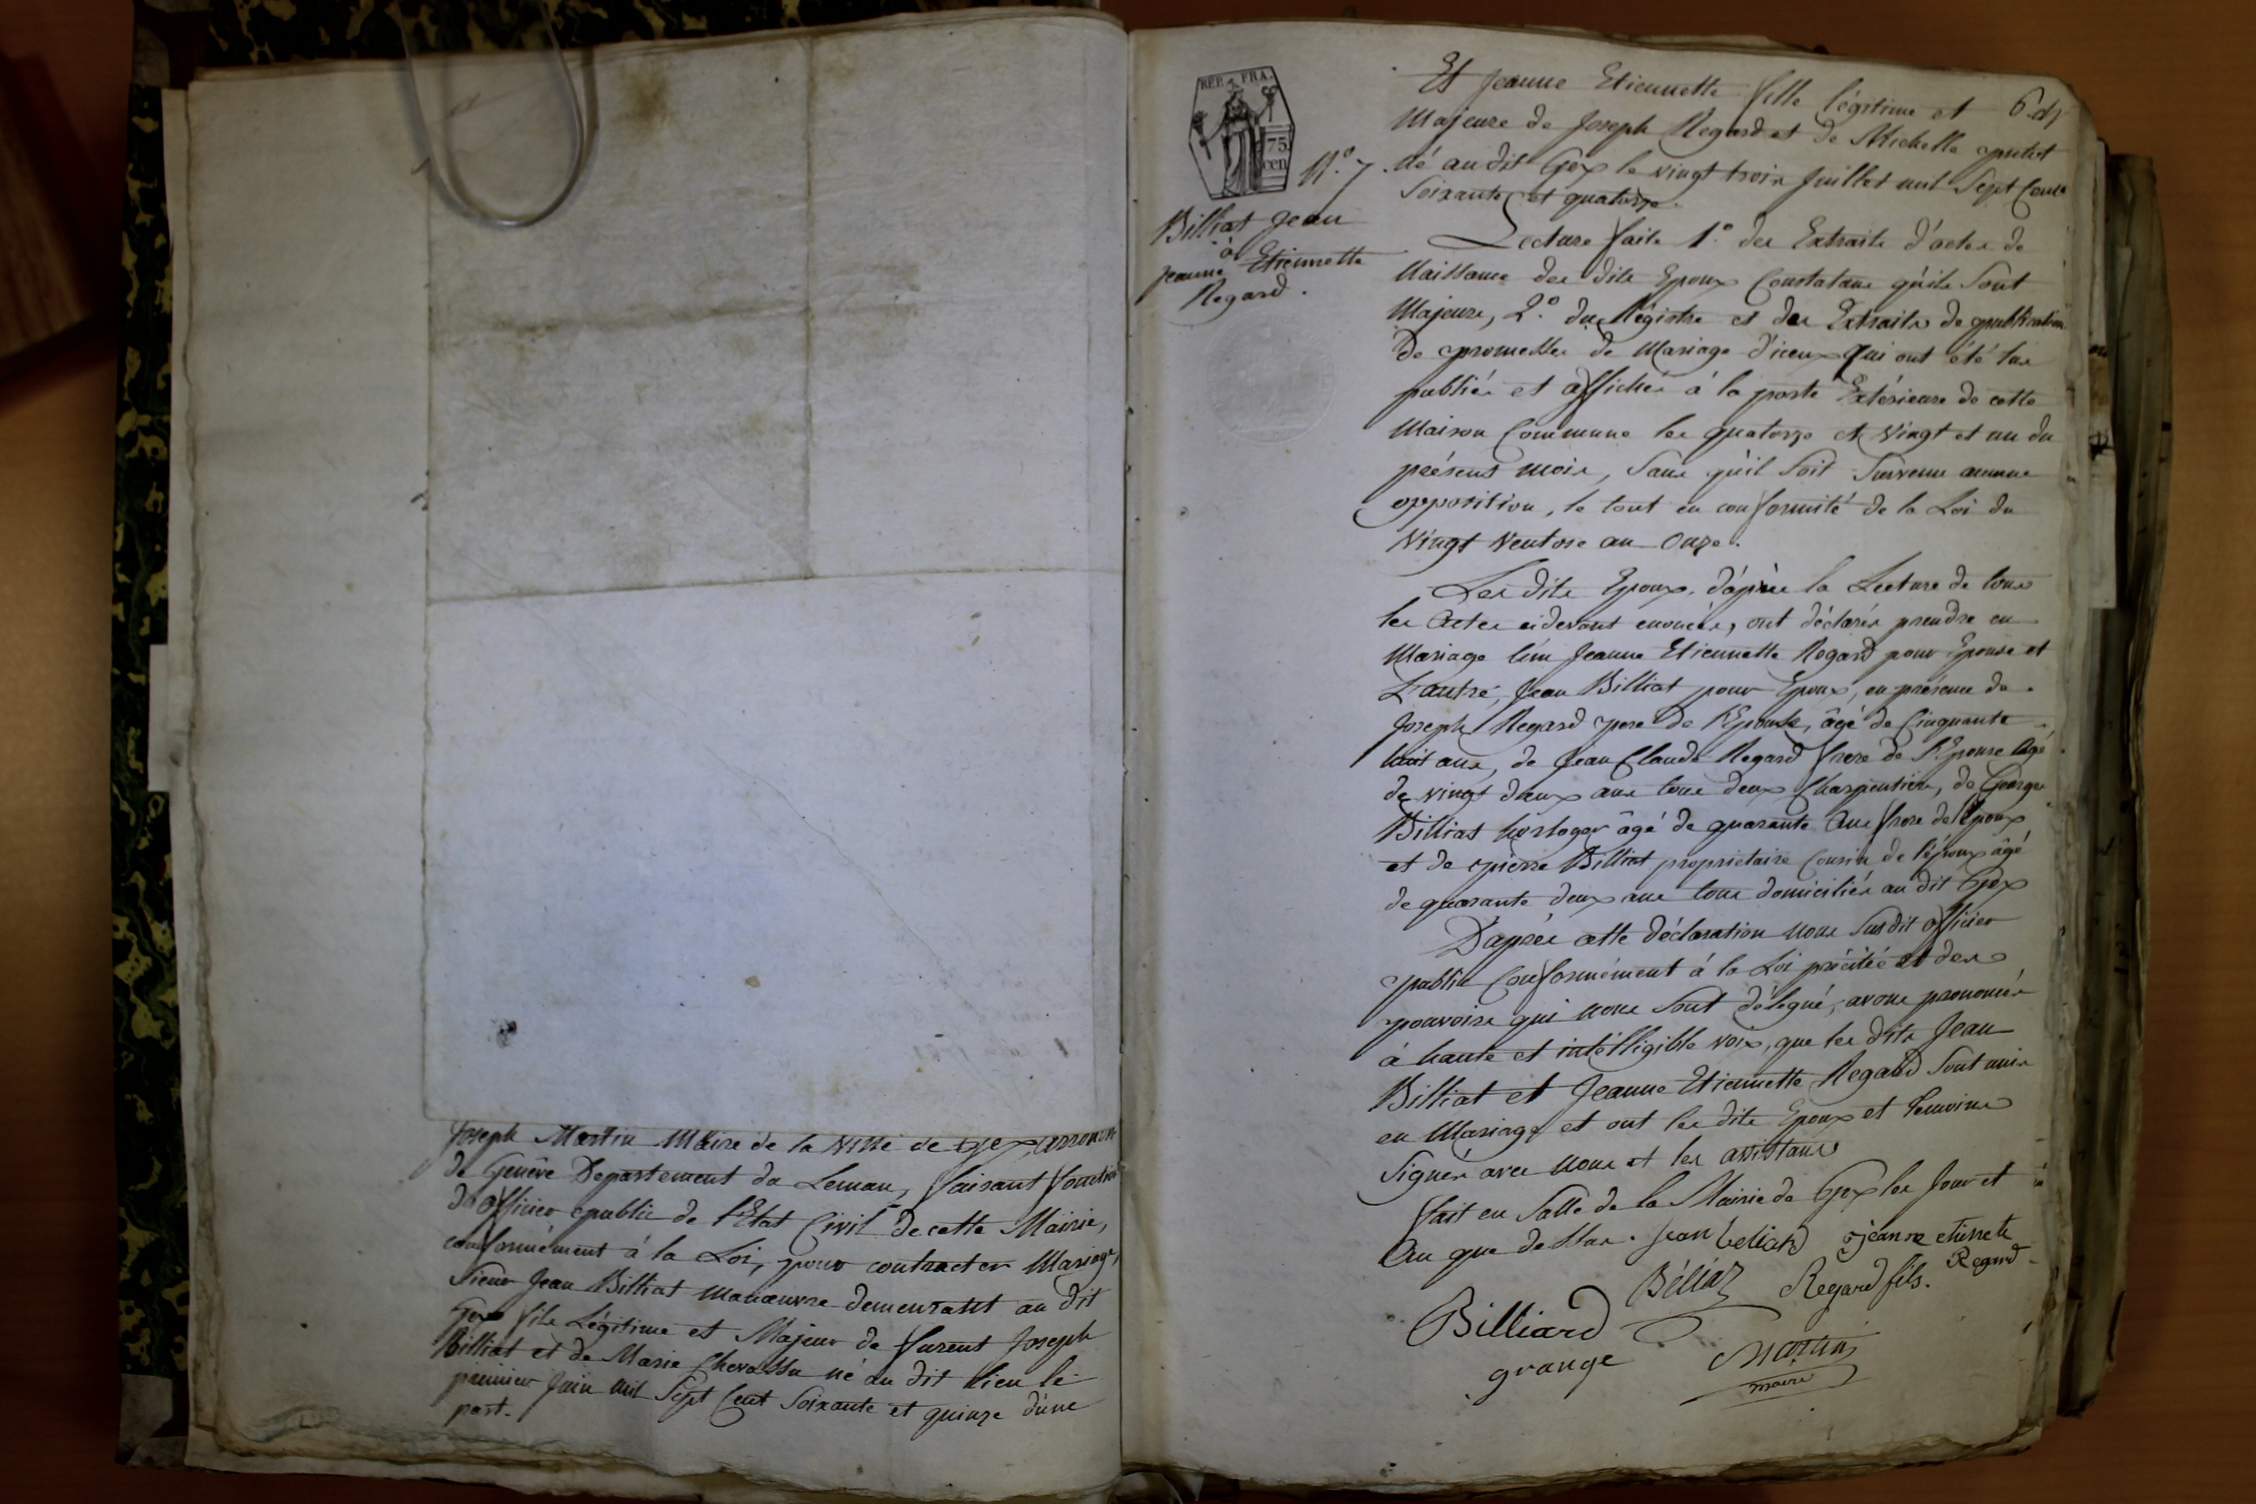 Joseph Martin Maire de la Ville de Gex, arrond.
de Genêve Departement du Leman, faisant fonction
d'officier public de l'Etat Civil de cette Mairie,
conformément à la Loi, pour contracter Mariage,
Sieur Jean Billiat manœuvre demeurant au dit
Gex fils Légitime et Majeur de furent Joseph
Billiat et de Marie Chevassu né au dit lieu le
premier Juin mil Sept Cent Soixante et quinze d'une
part.
REP. FRA.
75
cen
N.° 7
Billiat Jean
à
Jeanne Etiennette
Regard.
Et Jeanne Etiennette fille légitime et
Majeure de Joseph Regard et de Michelle
né au dit Gex le vingt trois Juillet mil Sept Cens
Soixante et quatorze.
Lecture faite 1.° des Extraits d'actes de
Naissance des dits Epoux Constatans qu'ils Sont
Majeurs, 2.° du Régistre et des Extraits de publication
De promesses de Mariage d'iceux qui ont été lus
publiés et affichés à la porte Extérieure de cette
Maison Commune les quatorze et Vingt et un du
présent mois, Sans qu'il Soit Survenu aucune
opposition, le tout en conformité de la Loi du
Vingt Ventose an Onze.
Les dits Epoux, d'après la Lecture de tous
les Actes cidevant enoncés, ont déclarés prendre en
Mariage l'un Jeanne Etiennette Regard pour Epouse et
L'autre, Jean Billiat pour Epoux, en présence de
Joseph Regard pere de l'Epouse, âgé de Cinquante
huit ans, de Jean Claude Regard frere de l'Epouse Agé
de vingt deux ans tous deux Charpentiers, de George
Billiat horloger âgé de quarante Ans frere de l'époux
et de pierre Billiat propriétaire Cousin de l'époux âgé
de quarante deux ans tous domiciliés au dit Gex
D'après cette déclaration nous Susdit officier
public Conformément à la Loi précitée et des
pouvoirs qui nous Sont délegué, avons prononcés
à haute et intélligible voix, que les dits Jean
Billiat et Jeanne Etiennette Regard Sont unis
en Mariage et ont les dits Epoux et temoins
Signés avec nous et les assistans
fait en Salle de la Mairie de Gex les Jour et
An que dessus. Jean beliard Jeanne etiennete
Regard
Béliaz Regard fils.
Billiard
grange Martin
maire